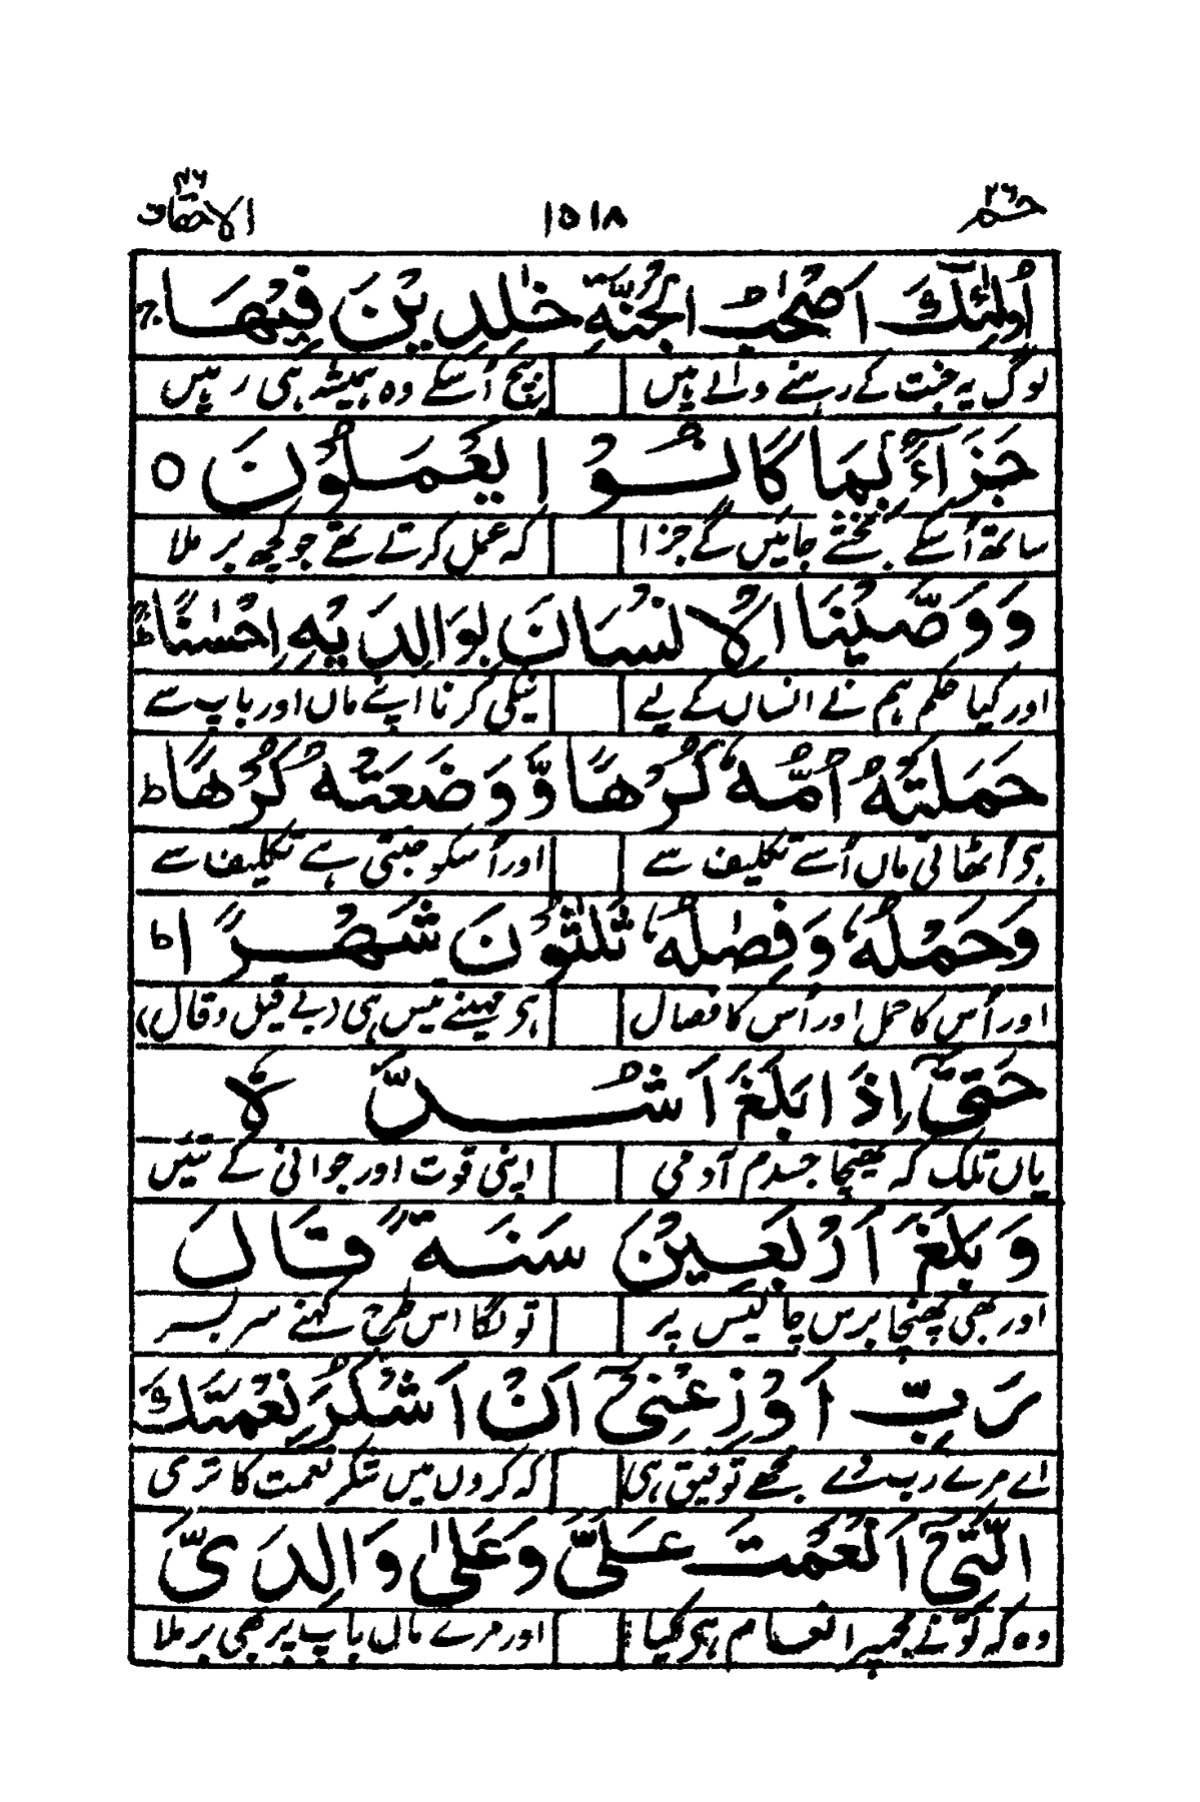 حٰمٓ ٢٦
١٥١٨
الاحقاف ٤٦
اُولٰٓئِكَ اَصْحٰبُ الْجَنَّةِ خٰلِدِيْنَ فِيْهَا ج
لوگ یہ جنت کے رہنے والے ہیں بیچ اُسکے وہ ہمیشہ ہی رہیں
جَزَآءًۢ بِمَا كَانُوْا يَعْمَلُوْنَ ○
ساتھ اُسکے بخشے جائیں گے جزا کہ عمل کرتے تھے جو کچھ بر ملا
وَوَصَّيْنَا الْاِنْسَانَ بِوَالِدَيْهِ اِحْسٰنًا ط
اور کیا حکم ہم نے انساں کے لیے نیکی کرنا اپنے ماں اور باپ سے
حَمَلَتْهُ اُمُّهٗ كُرْهًا وَّوَضَعَتْهُ كُرْهًا ط
ہر اُٹھاتی ماں اُسے تکلیف سے اور اُسکو جنتی ہے تکلیف سے
وَحَمْلُهٗ وَفِصٰلُهٗ ثَلٰثُوْنَ شَهْرًا ط
اور اُس کا حمل اور اُس کا فصال ہر مہینے تیس ہی (بے قیل و قال)
حَتّٰىٓ اِذَا بَلَغَ اَشُدَّهٗ
یاں تلک کہ پہنچا جسدم آدمی اپنی قوت اور جوانی کے تئیں
وَبَلَغَ اَرْبَعِيْنَ سَنَةً قَالَ
اور بھی پہنچا برس چالیس پر تو لگا اس طرح کہنے سر بسر
رَبِّ اَوْزِعْنِىْٓ اَنْ اَشْكُرَ نِعْمَتَكَ
اے مرے رب دے مجھے توفیق ہی کہ کروں میں شکر نعمت کا تری
الَّتِىْٓ اَنْعَمْتَ عَلَىَّ وَعَلٰى وَالِدَىَّ
وہ کہ تو نے مجھپر انعام ہر کیا اور مرے ماں باپ پر بھی بر ملا